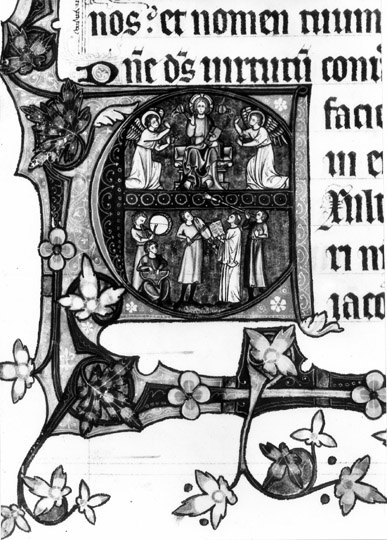 nos: et nomen tuum
Dñe ds̄ uirtutū conu
faci
in e
Xult
ri n
iaco